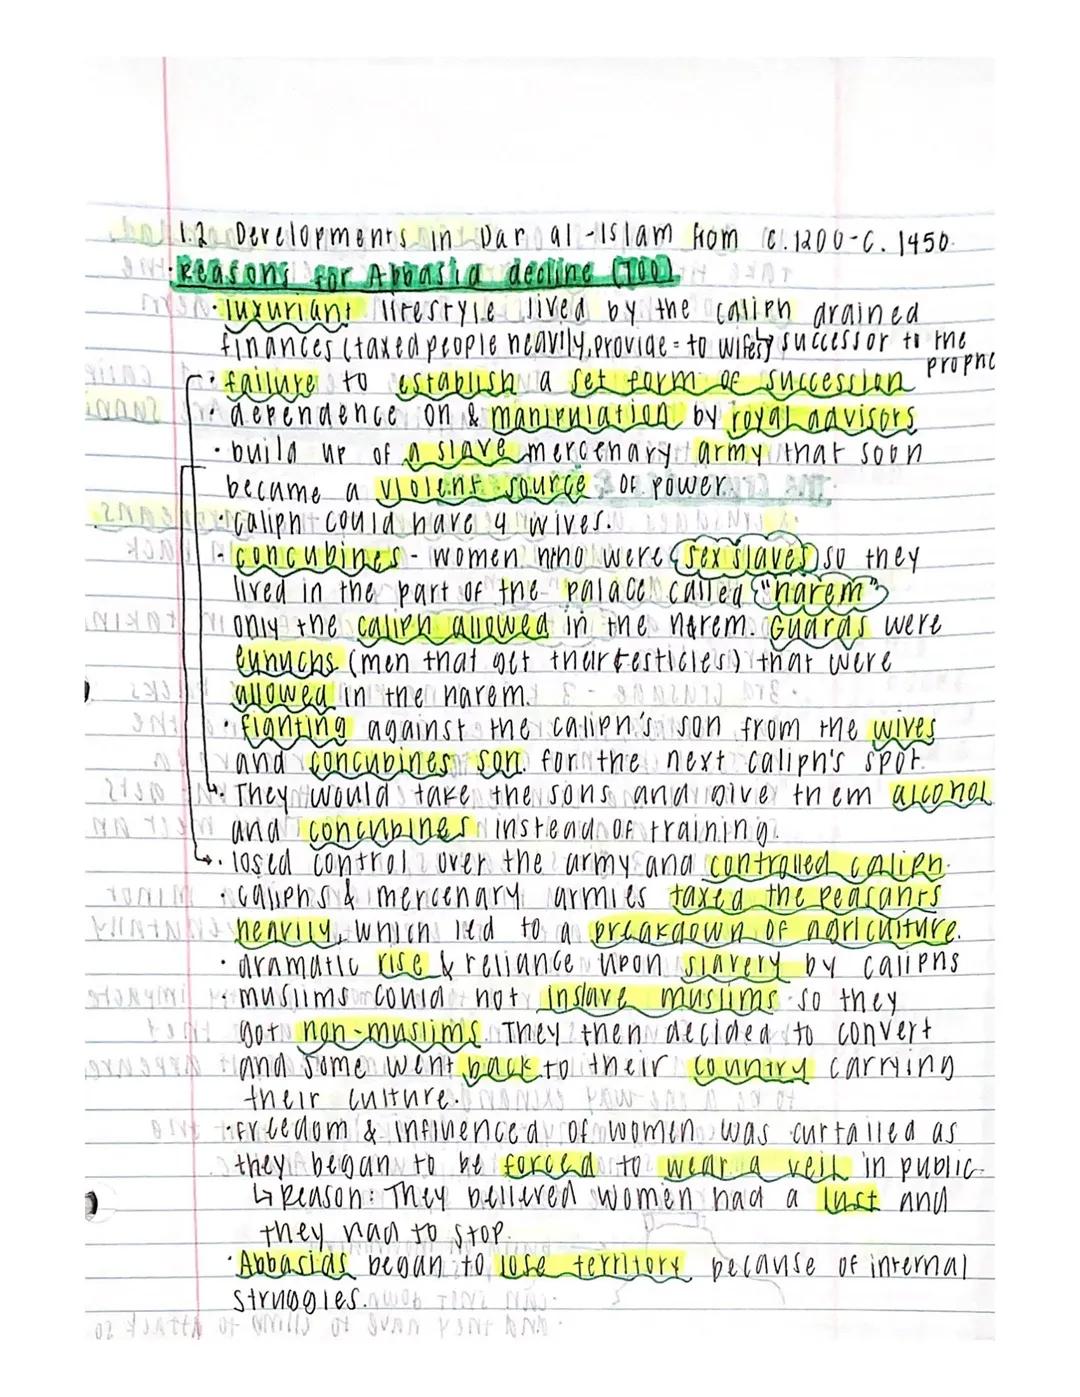 1.2 Developments in Dar al-Islam from c.1200-c. 1450.
· Reasons for Abbasid decline (700)
· luxuriant lifestyle lived by the caliph drained
finances (taxed people heavily, provide = to wifes) successor to the
prophe
· failure to establish a set form of succession
· dependence on & manipulation by royal advisors
· build up of a slave mercenary army that soon
became a violent source of power
· caliph could have 4 wives.
· concubines - women who were sex slaves so they
lived in the part of the palace called "harem"
only the caliph allowed in the harem. Guards were
eunuchs (men that get their testicles) that were
allowed in the harem.
· fighting against the caliph's son from the wives
and concubines son. for the next caliph's spot.
↳. They would take the sons and give them alcohol
and concubines instead of training.
→. losed control over the army and controlled caliph.
· caliphs & mercenary armies taxed the peasants
heavily, which led to a breakdown of agriculture.
· dramatic rise & reliance upon slavery by caliphs
· muslims could not inslave muslims so they
got non-muslims. They then decided to convert
and some went back to their country carrying
their culture.
· Freedom & influenced of women was curtailed as
they began to be forced to wear a veil in public.
↳ Reason: They believed women had a lust and
they had to stop.
· Abbasids began to lose territory because of internal
struggles.